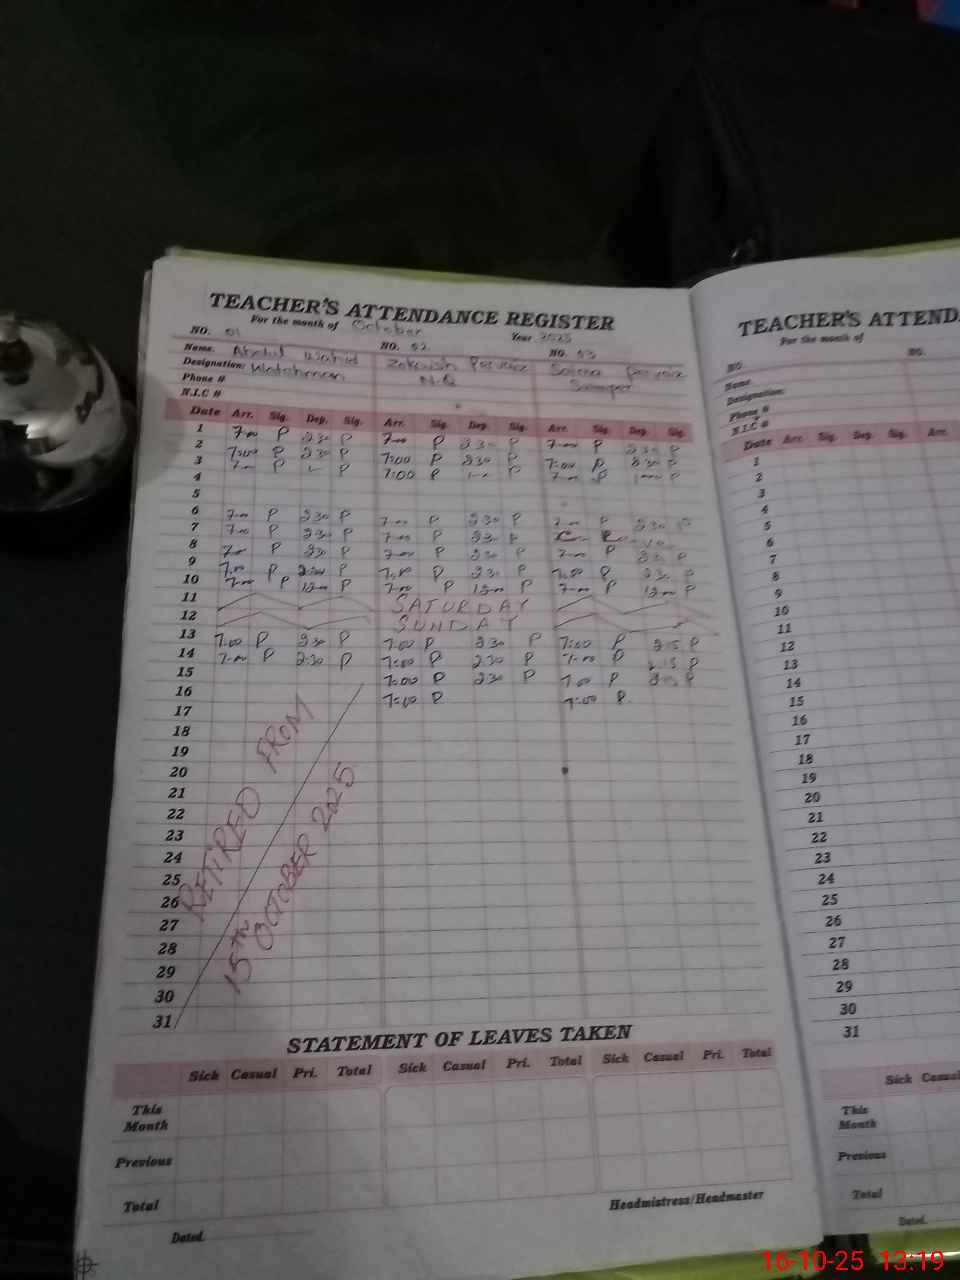 TEACHER'S ATTENDANCE REGISTER
For the month of October Year 2025
NO. 01 NO. 02 NO. 03
Name. Abdul Wahid Pervaiz Pervaiz
Designation: Watchman N.Q
Phone #
N.I.C #
Date Arr. Sig. Dep. Sig. Arr. Sig. Dep. Sig. Arr. Sig. Dep. Sig.
1 7-00 P 230 P 7-00 P 230 P 7-00 P 230 P
2 7:00 P 230 P 7:00 P 230 P 7:00 P 230 P
3 7-00 P P 7:00 P P 7-00 P P
4
5
6 7-00 P 230 P 7-00 P 230 P 7-00 P 230 P
7 7-00 P 230 P 7-00 P 230 P
8 7-00 P 230 P 7-00 P 230 P 7-00 P 230 P
9 7:00 P 230 P 7:00 P 230 P 7:00 P 230 P
10 7-00 P 12-00 P 7-00 P 12-00 P 7-00 P 12-00 P
11 SATURDAY
12 SUNDAY
13 7:00 P 230 P 7:00 P 230 P 7:00 P 215 P
14 7-00 P 2:30 P 7:00 P 230 P 7-00 P 2:15 P
15 7:00 P 230 P 7:00 P P
16 7:00 P 7:00 P
17
18
19
20
21
22
23
24
25
26
27
28
29
30
31
RETIRED FROM
15TH OCTOBER 2025
STATEMENT OF LEAVES TAKEN
Sick Casual Pri. Total Sick Casual Pri. Total Sick Casual Pri. Total
This Month
Previous
Total
Headmistress/Headmaster
Dated.
TEACHER'S ATTEND
For the month of
NO. NO.
Name.
Designation:
Phone #
N.I.C #
Date Arr. Sig. Dep. Sig. Arr.
1
2
3
4
5
6
7
8
9
10
11
12
13
14
15
16
17
18
19
20
21
22
23
24
25
26
27
28
29
30
31
Sick Casual
This Month
Previous
Total
Dated.
16-10-25 13:19